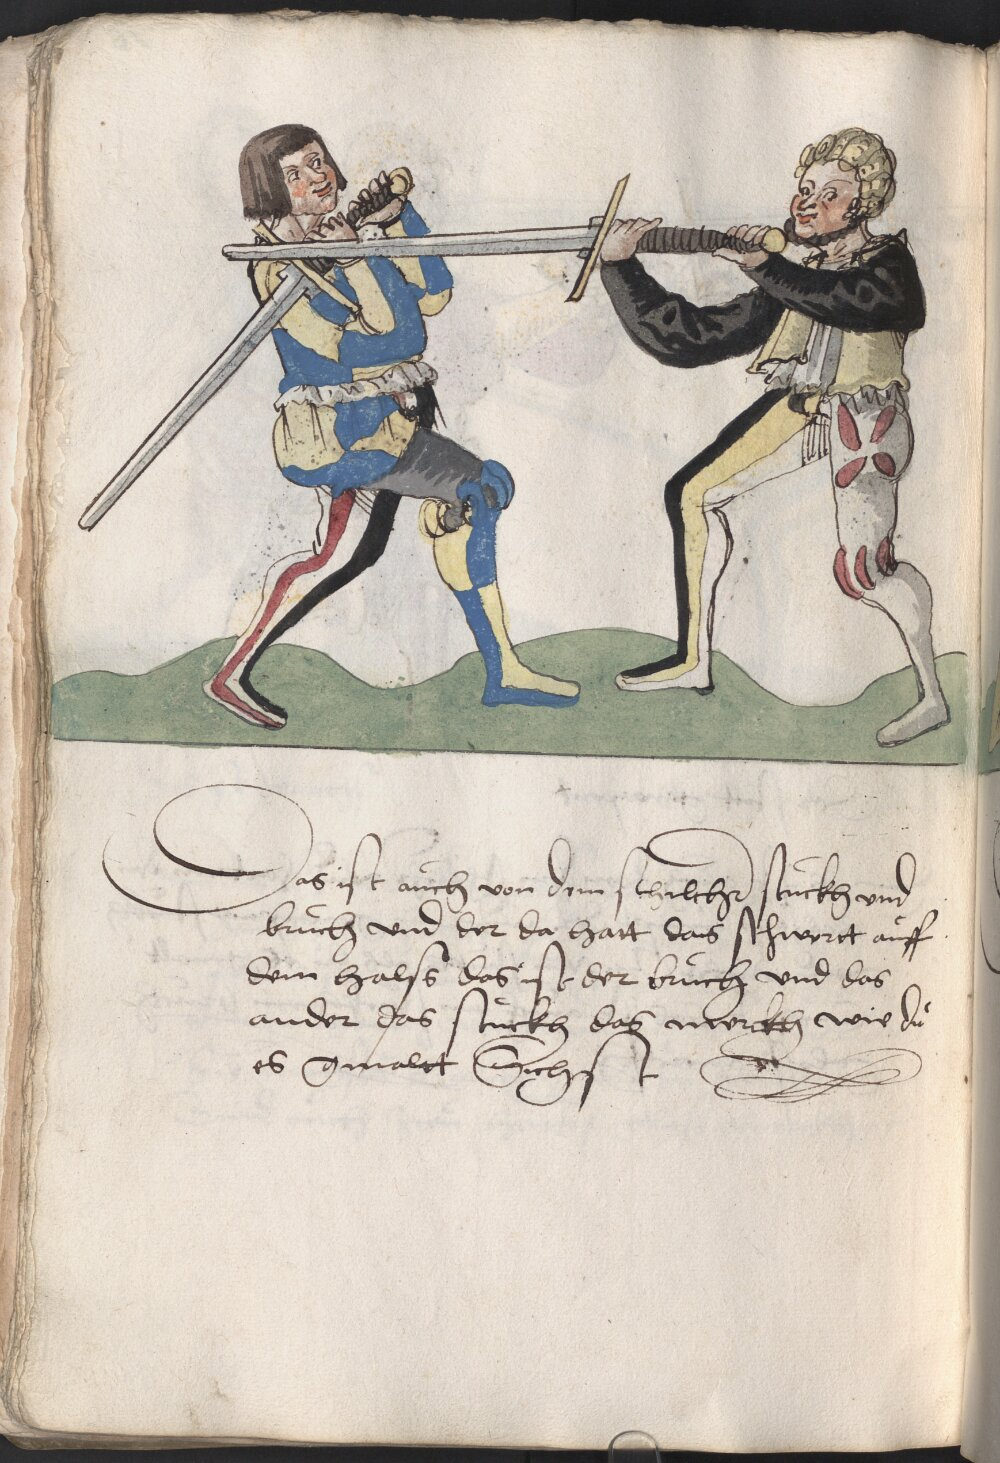 Das ist auch von dem schilcher stuckh und
bruch und der da hatt das schwert auff
dem halss das ist der bruch und das
ander das stuckh das merckh wie du
es gmaltt Sichst